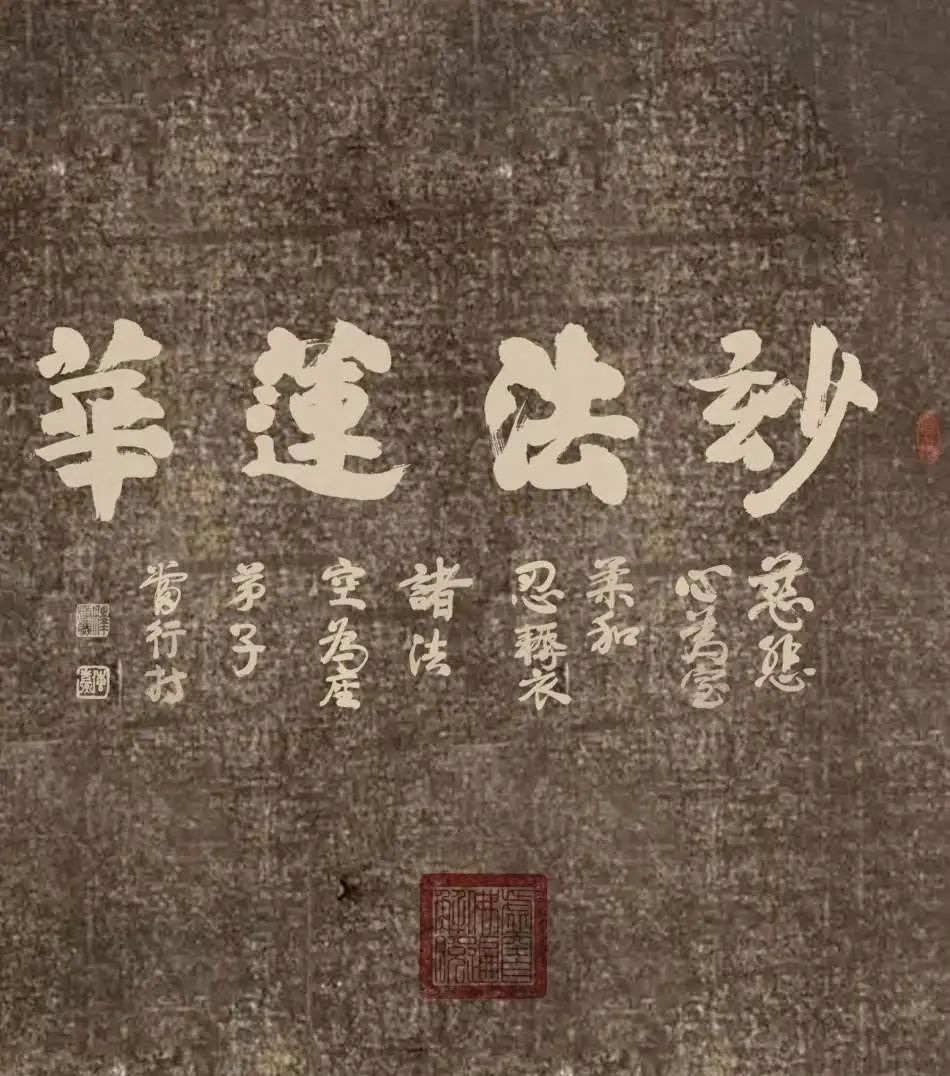 玅法蓮華
慈悲
心為室
柔和
忍辱衣
諸法
空為座
弟子
當行